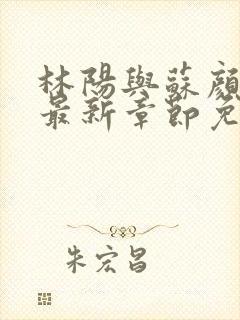 林陽與蘇顏
最新章節免
朱宏昌